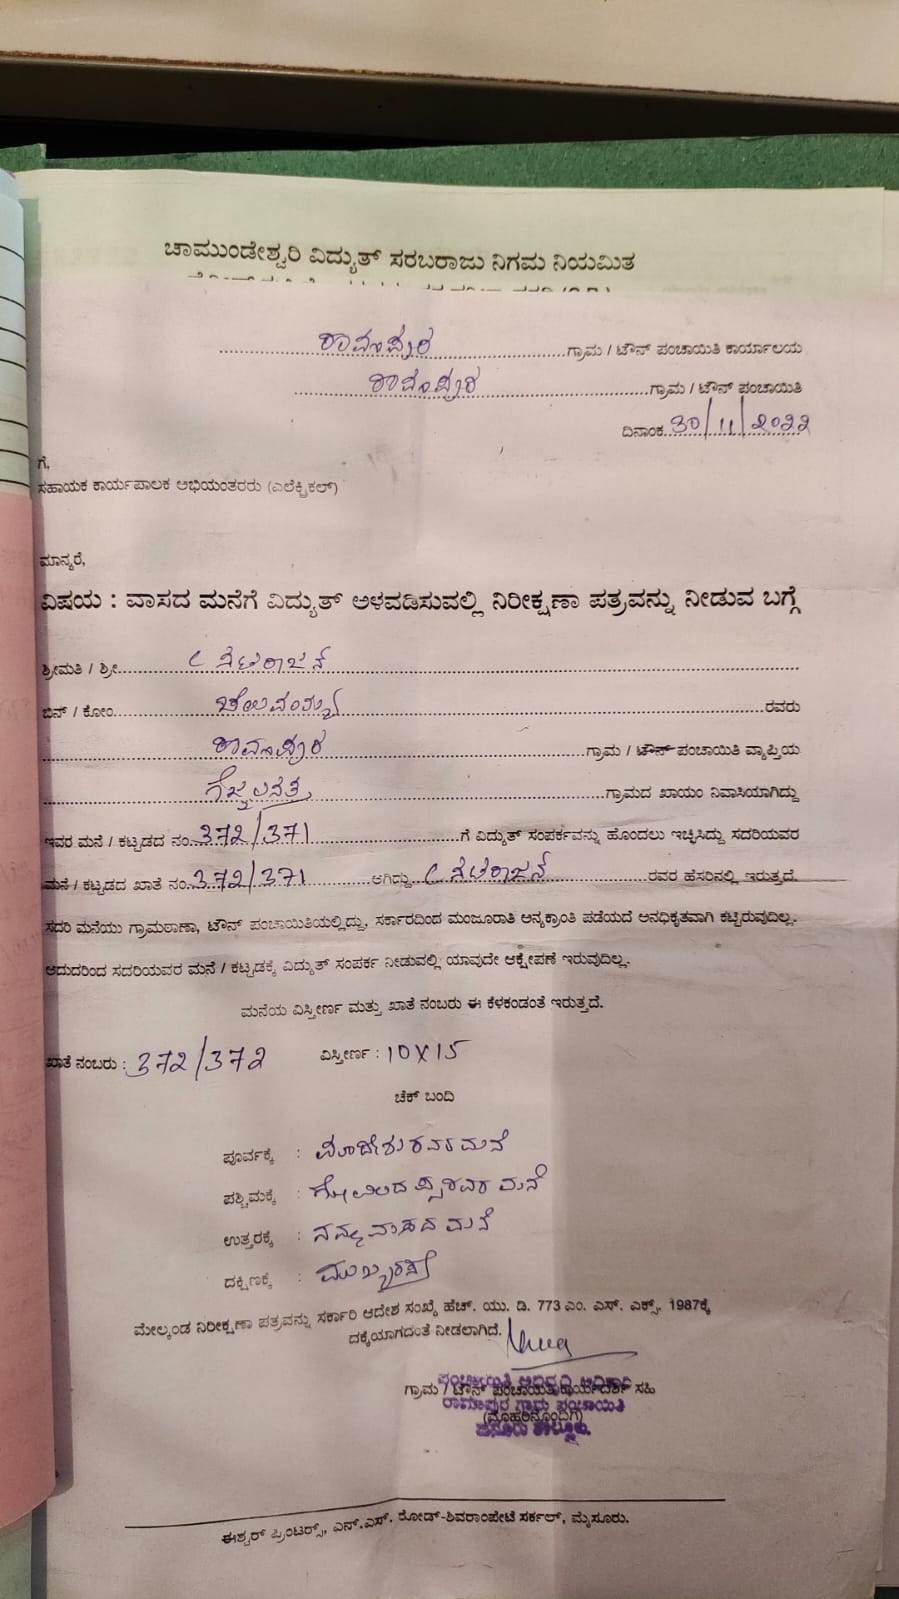 ಚಾಮುಂಡೇಶ್ವರಿ ವಿದ್ಯುತ್ ಸರಬರಾಜು ನಿಗಮ ನಿಯಮಿತ
ರಾಮಾಪುರ ಗ್ರಾಮ / ಟೌನ್ ಪಂಚಾಯಿತಿ ಕಾರ್ಯಾಲಯ
ರಾಮಾಪುರ ಗ್ರಾಮ / ಟೌನ್ ಪಂಚಾಯಿತಿ
ದಿನಾಂಕ 30/11/2022
ಗೆ,
ಸಹಾಯಕ ಕಾರ್ಯಪಾಲಕ ಅಭಿಯಂತರರು (ಎಲೆಕ್ಟ್ರಿಕಲ್)
ಮಾನ್ಯರೆ,
ವಿಷಯ : ವಾಸದ ಮನೆಗೆ ವಿದ್ಯುತ್ ಅಳವಡಿಸುವಲ್ಲಿ ನಿರೀಕ್ಷಣಾ ಪತ್ರವನ್ನು ನೀಡುವ ಬಗ್ಗೆ
ಶ್ರೀಮತಿ / ಶ್ರೀ
ಬಿನ್ / ಕೋಂ ರವರು
ರಾಮಾಪುರ ಗ್ರಾಮ / ಟೌನ್ ಪಂಚಾಯಿತಿ ವ್ಯಾಪ್ತಿಯ
ಗ್ರಾಮದ ಖಾಯಂ ನಿವಾಸಿಯಾಗಿದ್ದು
ಇವರ ಮನೆ / ಕಟ್ಟಡದ ನಂ. 372/371 ಗೆ ವಿದ್ಯುತ್ ಸಂಪರ್ಕವನ್ನು ಹೊಂದಲು ಇಚ್ಛಿಸಿದ್ದು ಸದರಿಯವರ
ಮನೆ / ಕಟ್ಟಡದ ಖಾತೆ ನಂ. 372/371 ಆಗಿದ್ದು ರವರ ಹೆಸರಿನಲ್ಲಿ ಇರುತ್ತದೆ.
ಸದರಿ ಮನೆಯು ಗ್ರಾಮಠಾಣಾ, ಟೌನ್ ಪಂಚಾಯಿತಿಯಲ್ಲಿದ್ದು, ಸರ್ಕಾರದಿಂದ ಮಂಜೂರಾತಿ ಅನ್ಯಕ್ರಾಂತಿ ಪಡೆಯದೆ ಅನಧಿಕೃತವಾಗಿ ಕಟ್ಟಿರುವುದಿಲ್ಲ.
ಆದುದರಿಂದ ಸದರಿಯವರ ಮನೆ / ಕಟ್ಟಡಕ್ಕೆ ವಿದ್ಯುತ್ ಸಂಪರ್ಕ ನೀಡುವಲ್ಲಿ ಯಾವುದೇ ಆಕ್ಷೇಪಣೆ ಇರುವುದಿಲ್ಲ.
ಮನೆಯ ವಿಸ್ತೀರ್ಣ ಮತ್ತು ಖಾತೆ ನಂಬರು ಈ ಕೆಳಕಂಡಂತೆ ಇರುತ್ತದೆ.
ಖಾತೆ ನಂಬರು : 372/372 ವಿಸ್ತೀರ್ಣ : 10X15
ಚೆಕ್ ಬಂದಿ
ಪೂರ್ವಕ್ಕೆ : ಮನೆ
ಪಶ್ಚಿಮಕ್ಕೆ : ಮನೆ
ಉತ್ತರಕ್ಕೆ : ಮನೆ
ದಕ್ಷಿಣಕ್ಕೆ : ಮುಖ್ಯರಸ್ತೆ
ಮೇಲ್ಕಂಡ ನಿರೀಕ್ಷಣಾ ಪತ್ರವನ್ನು ಸರ್ಕಾರಿ ಆದೇಶ ಸಂಖ್ಯೆ ಹೆಚ್. ಯು. ಡಿ. 773 ಎಂ. ಎಸ್. ಎಕ್ಸ್. 1987ಕ್ಕೆ
ದಕ್ಕೆಯಾಗದಂತೆ ನೀಡಲಾಗಿದೆ.
ಪಂಚಾಯಿತಿ ಅಭಿವೃದ್ಧಿ ಅಧಿಕಾರಿ
ಗ್ರಾಮ / ಟೌನ್ ಪಂಚಾಯಿತಿ ಕಾರ್ಯದರ್ಶಿ ಸಹಿ
ರಾಮಾಪುರ ಗ್ರಾಮ ಪಂಚಾಯಿತಿ
(ಮೊಹರಿನೊಂದಿಗೆ)
ಈಶ್ವರ್ ಪ್ರಿಂಟರ್ಸ್, ಎನ್.ಎಸ್. ರೋಡ್-ಶಿವರಾಂಪೇಟೆ ಸರ್ಕಲ್, ಮೈಸೂರು.